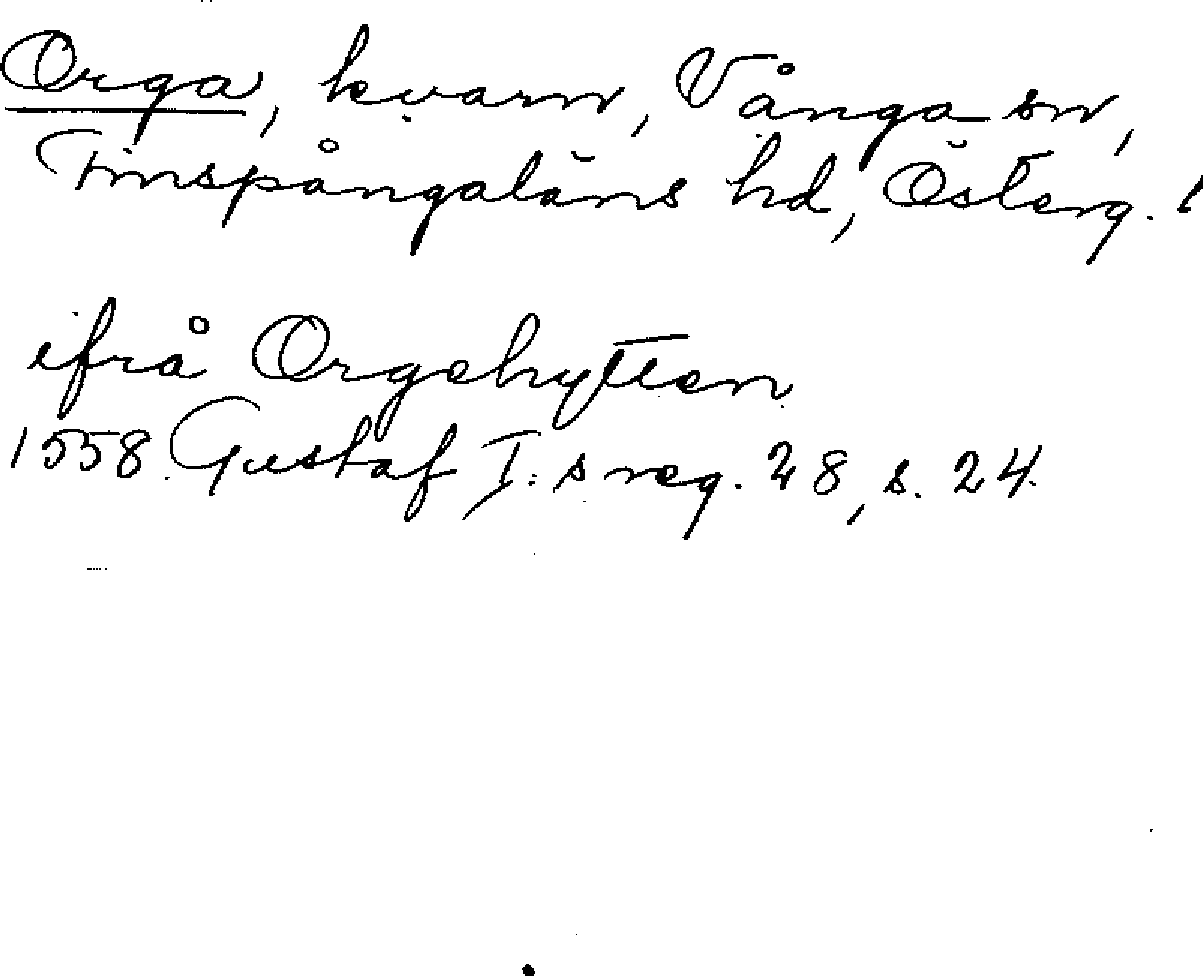 Orga, kvarn, Vånga sn,
Finspångaläns hd, Österg. l
ifrå Orgehytten
1558 Gustaf I:s reg. 28, s. 24.